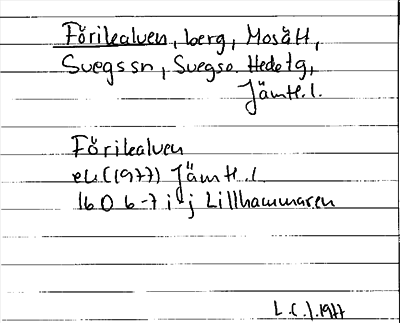 Förikalven, berg, Mosätt,
Svegs sn, Svegs o. Hede tg,
Jämtl. l.
Förikalven
ek (1977) Jämtl. l
16 D 6-7 i-j Lillhammaren
L.C.J. 1977